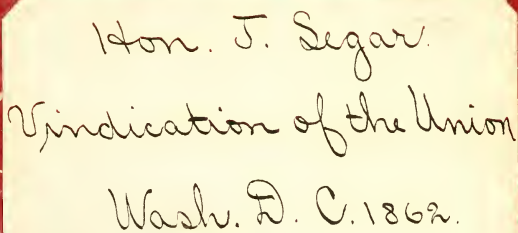 Hon. J. Segar.
Vindication of the Union
Wash. D. C. 1862.